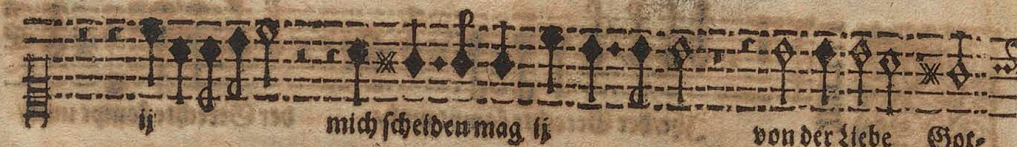 ij mich scheiden mag ij von der Liebe Got-